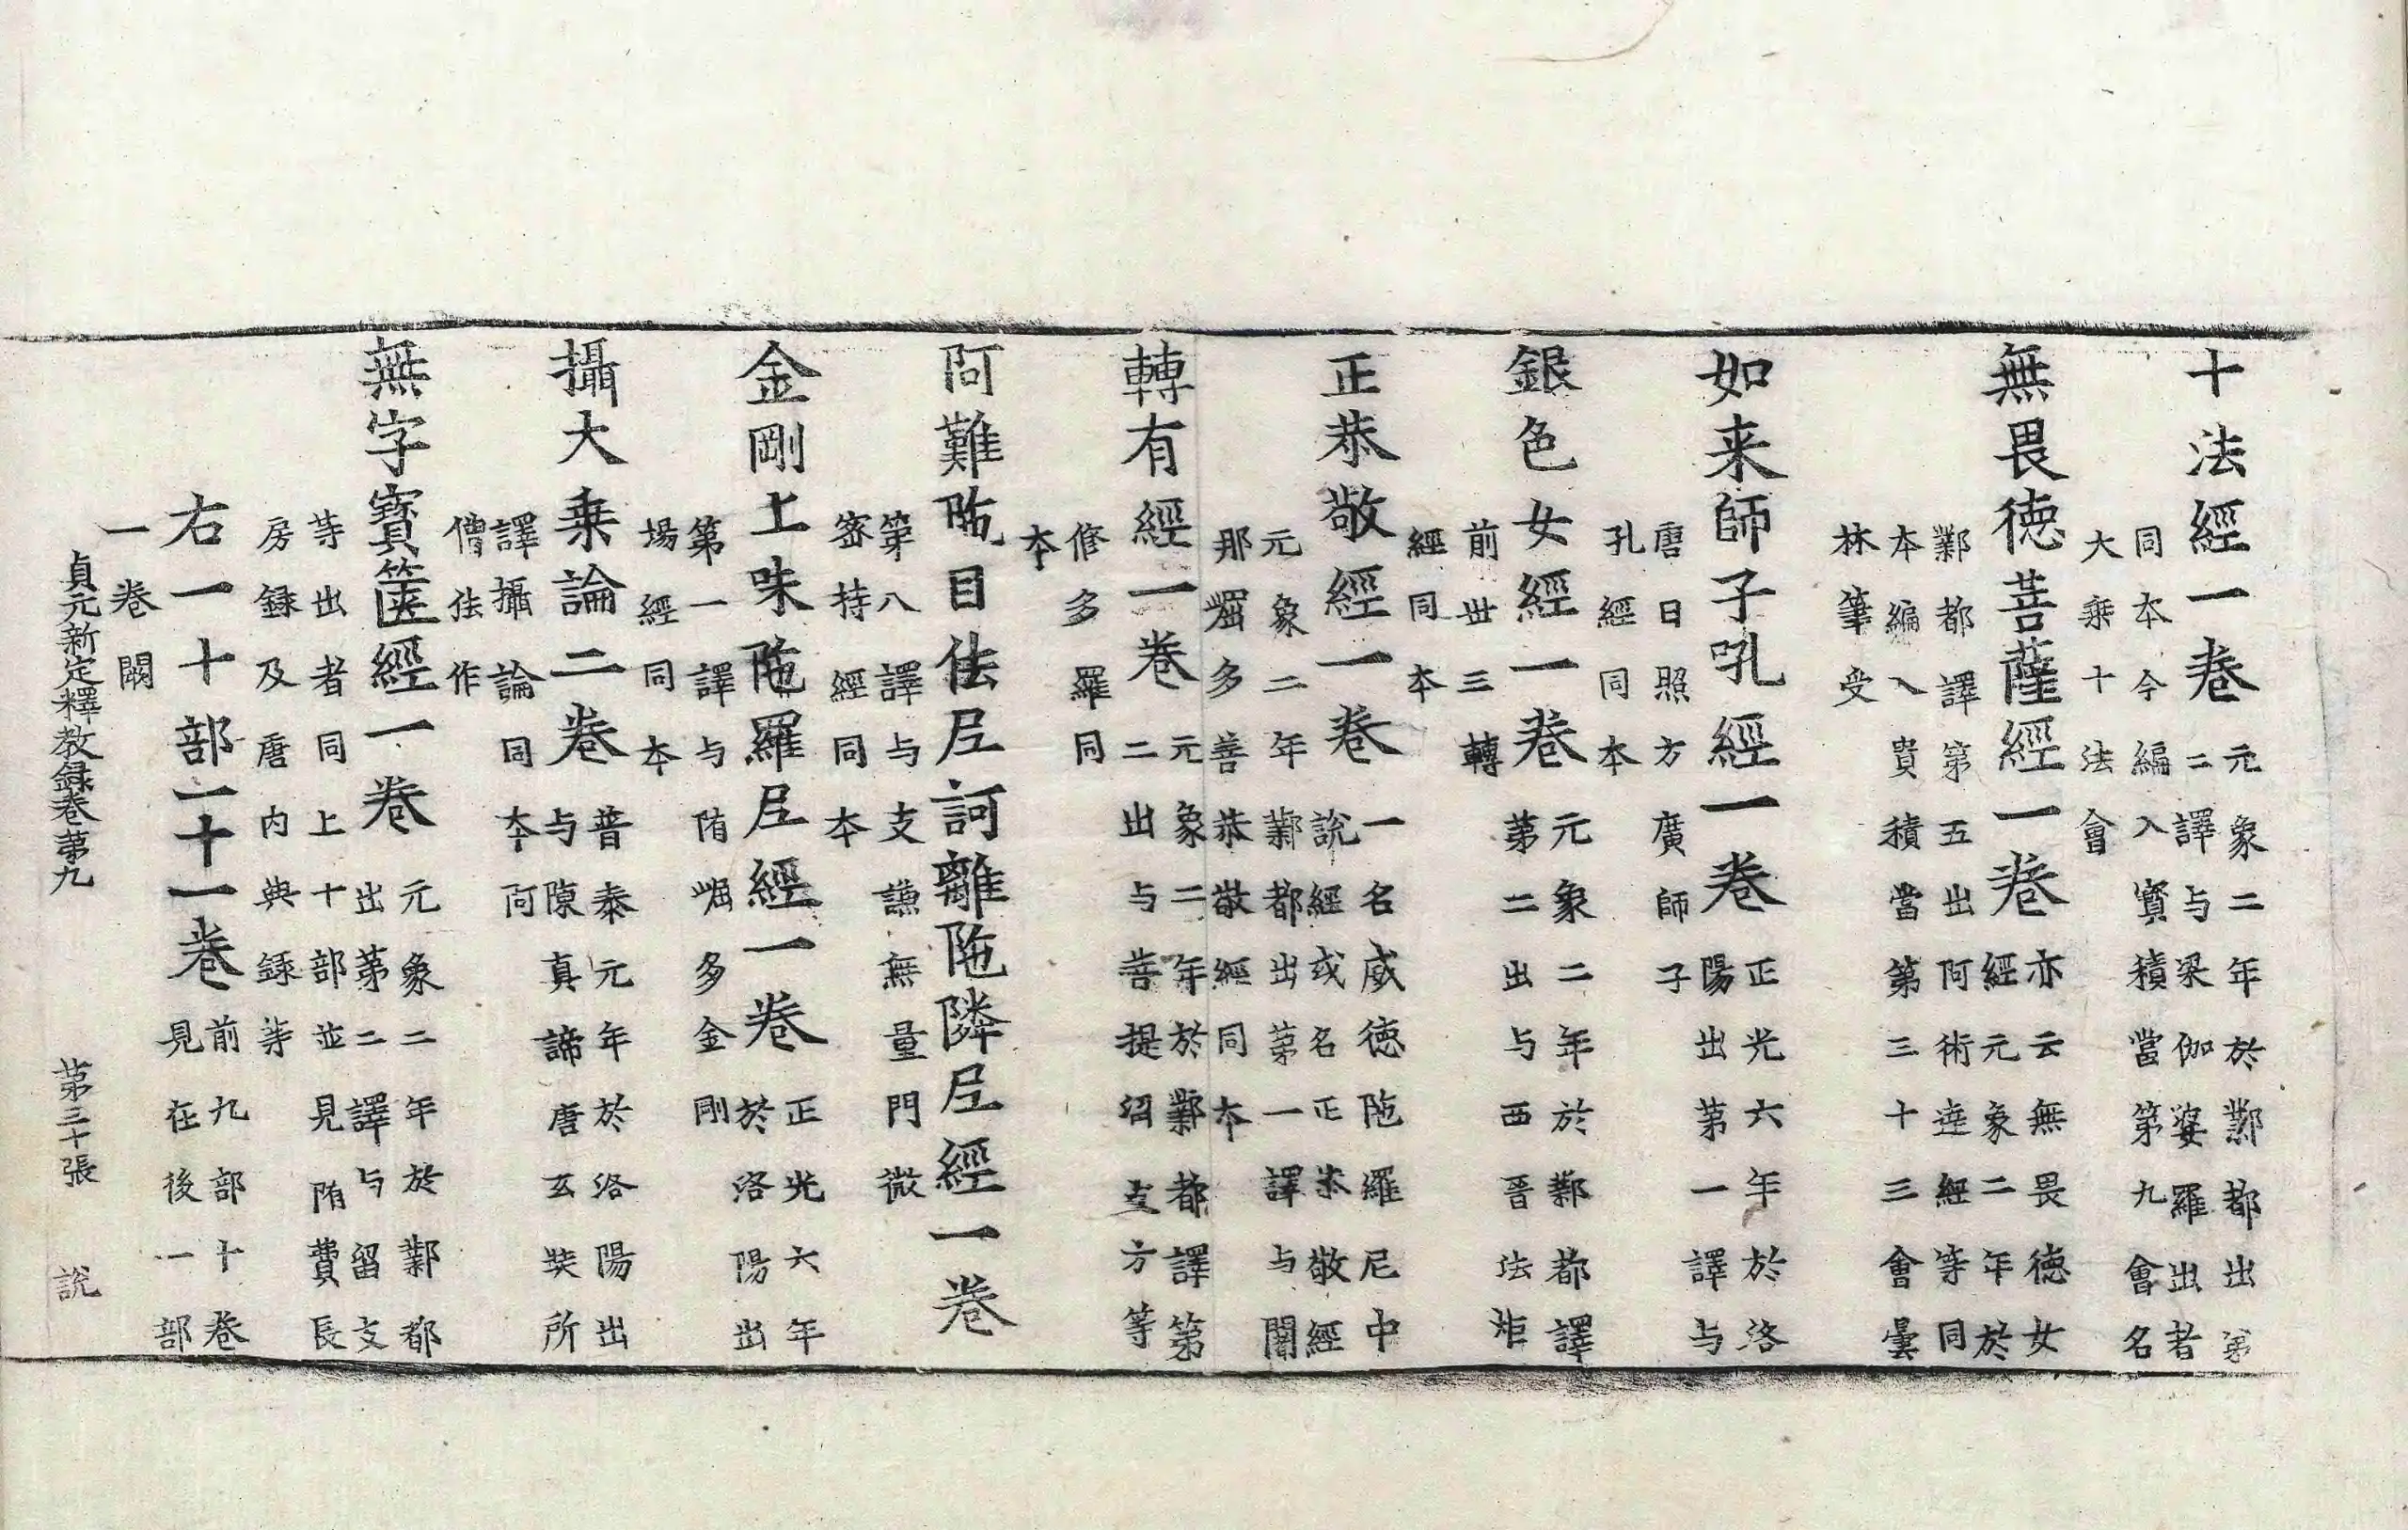 十法經一卷
元象二年於鄴都出第
二譯与梁伽婆羅出者
同本今編入寶積當第九會名
大乗十法會
無畏徳菩薩經一卷
亦云無畏徳女
經元象二年於
鄴都譯第五出阿術達經等同
本編入貴積當第三十三會曇
林筆受
如来師子吼經一卷
正光六年於洛
陽出第一譯与
唐日照方廣師子
孔經同本
銀色女經一卷
元象二年於鄴都譯
第二出与西晉法炬
前世三轉
經同本
正恭敬經一卷
一名威徳陁羅尼中
說經或名正恭敬經
元象二年鄴都出第一譯与闍
那崛多善恭敬經同本
轉有經一卷
元象二年於鄴都譯第
二出与菩提沼支方等
修多羅同
本
阿難陁目佉尼訶離陁隣尼經一卷
第八譯与支謙無量門微
密持經同本
金剛上味陁羅尼經一卷
正光六年
於洛陽出
第一譯与隋崛多金剛
場經同本
攝大乗論二卷
普泰元年於洛陽出
与陳真諦唐玄奘所
譯攝論同本阿
僧佉作
無字寶篋經一卷
元象二年於鄴都
出第二譯与留支
等出者同上十部並見隋費長
房録及唐内典録等
右一十部一十一卷
前九部十卷
見在後一部
一卷闕
貞元新定釋教録卷第九 第三十張 說